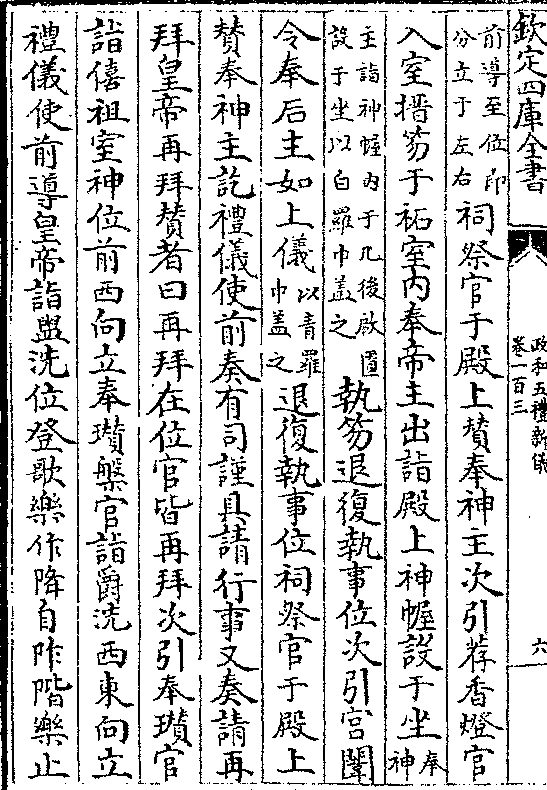 欽定四庫全書
政和五禮新儀
卷一百三
六
前導至位即
分立于左右
祠祭官于殿上賛奉神主次引荐香燈官
入室搢笏于祏室内奉帝主出詣殿上神幄設于坐
奉神
主詣神幄内于几後啟匱
設于坐以白羅巾蓋之
執笏退復執事位次引宫闈
令奉后主如上儀
以青羅
巾盖之
退復執事位祠祭官于殿上
賛奉神主訖禮儀使前奏有司謹具請行事又奏請再
拜皇帝再拜賛者曰再拜在位官皆再拜次引奉瓚官
詣僖祖室神位前西向立奉瓚槃官詣爵洗西東向立
禮儀使前導皇帝詣盥洗位登歌樂作降自阼階樂止